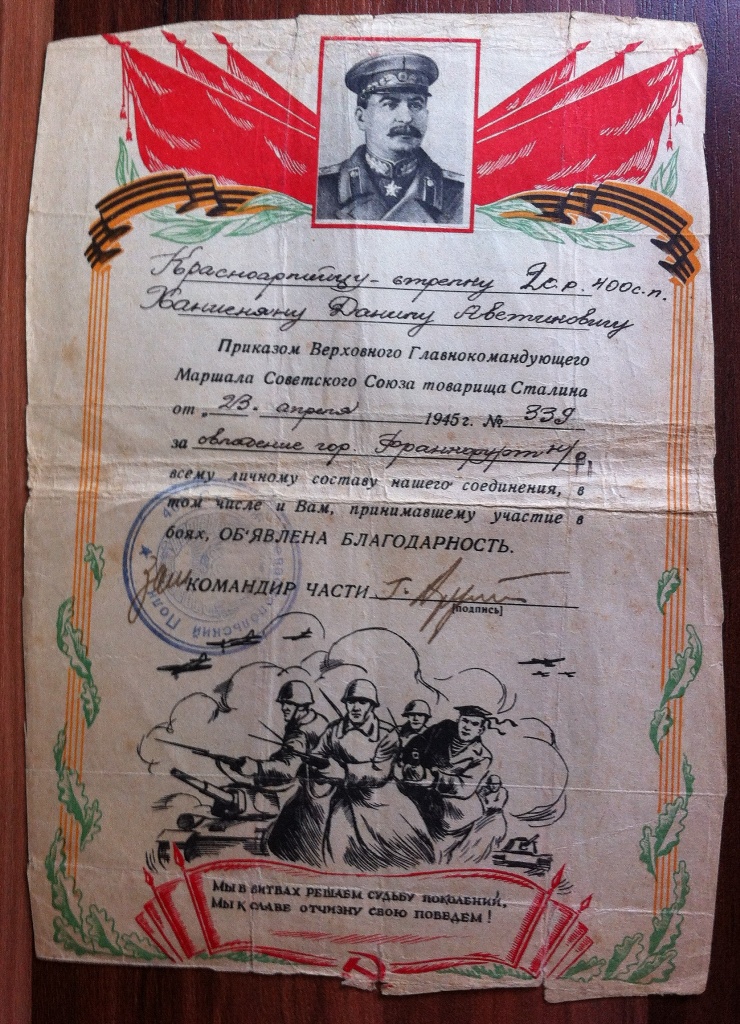 Красноармейцу - стрелку 2с.р. 400с.п.
Ханисняну Данилу Аветиковичу
Приказом Верховного Главнокомандующего
Маршала Советского Союза товарища Сталина
от „ 23. апреля 1945 г. № 339
за овладение гор. Франкфурт н/О,
всему личному составу нашего соединения, в
том числе и Вам, принимавшему участие в
боях, ОБ'ЯВЛЕНА БЛАГОДАРНОСТЬ.
зам КОМАНДИР ЧАСТИ
[подпись]
МЫ В БИТВАХ РЕШАЕМ СУДЬБУ ПОКОЛЕНИЙ,
МЫ К СЛАВЕ ОТЧИЗНУ СВОЮ ПОВЕДЕМ!